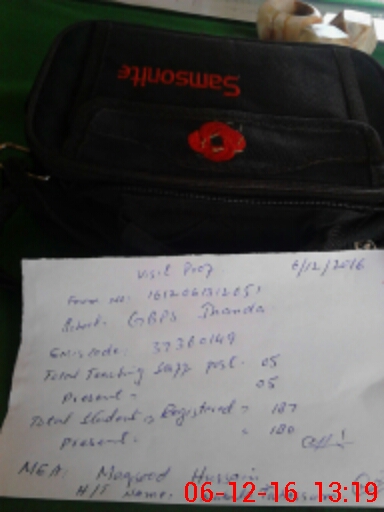 Samsonite
Visit Prof
6/12/2016
Form No:
School: GBPS Jhanda
EMIS code: 37380149
Total Teaching Staff post. 05
Present = 05
Total Students Registered = 187
Present = 180
MEA: Maqsood Hussain
H/T Name:
06-12-16 13:19